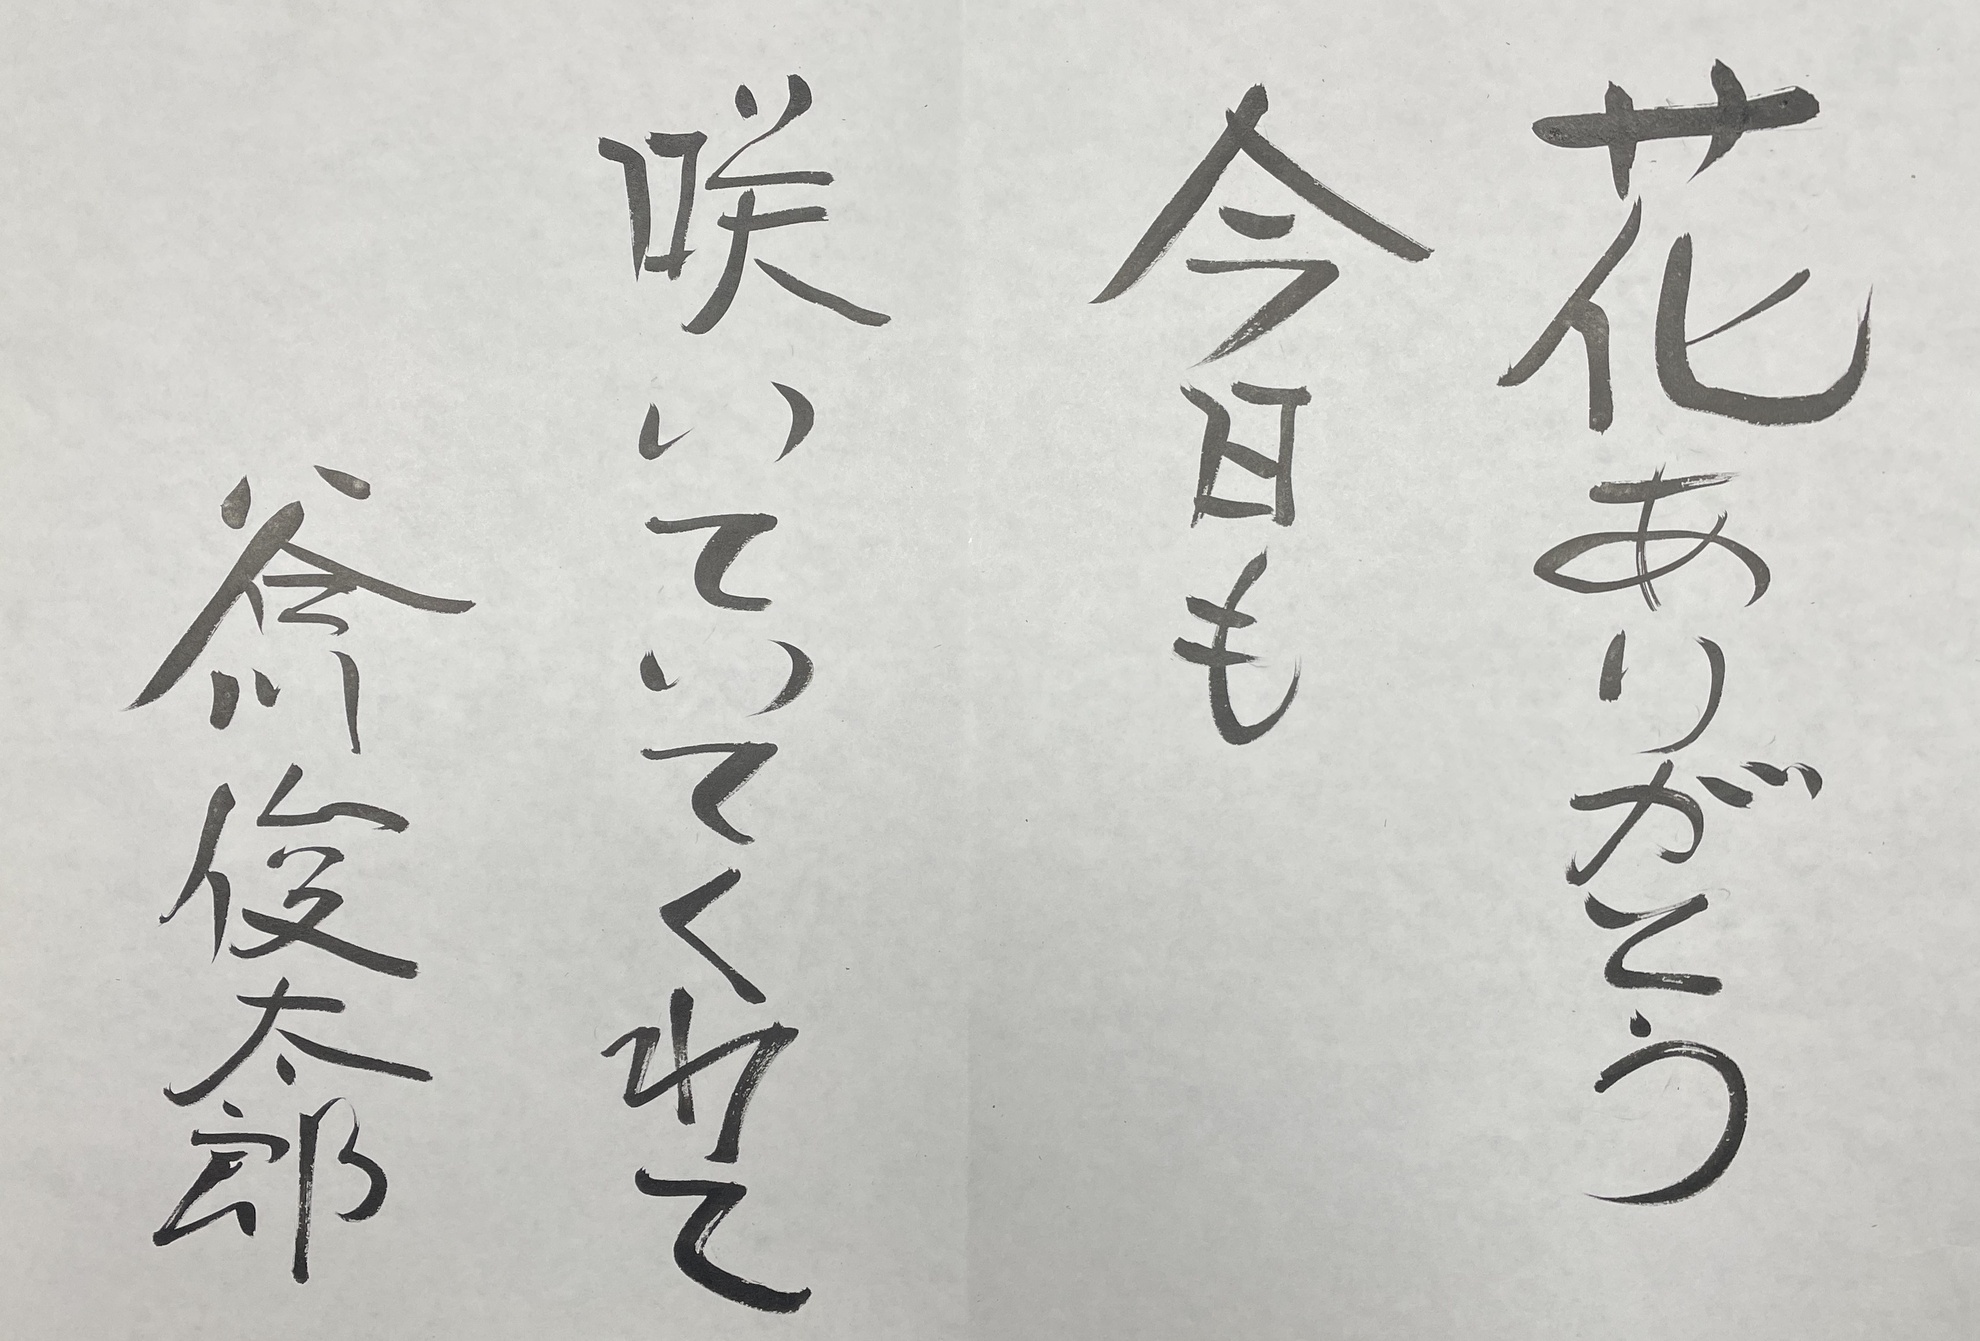 花ありがとう
今日も
咲いていてくれて
谷川俊太郎